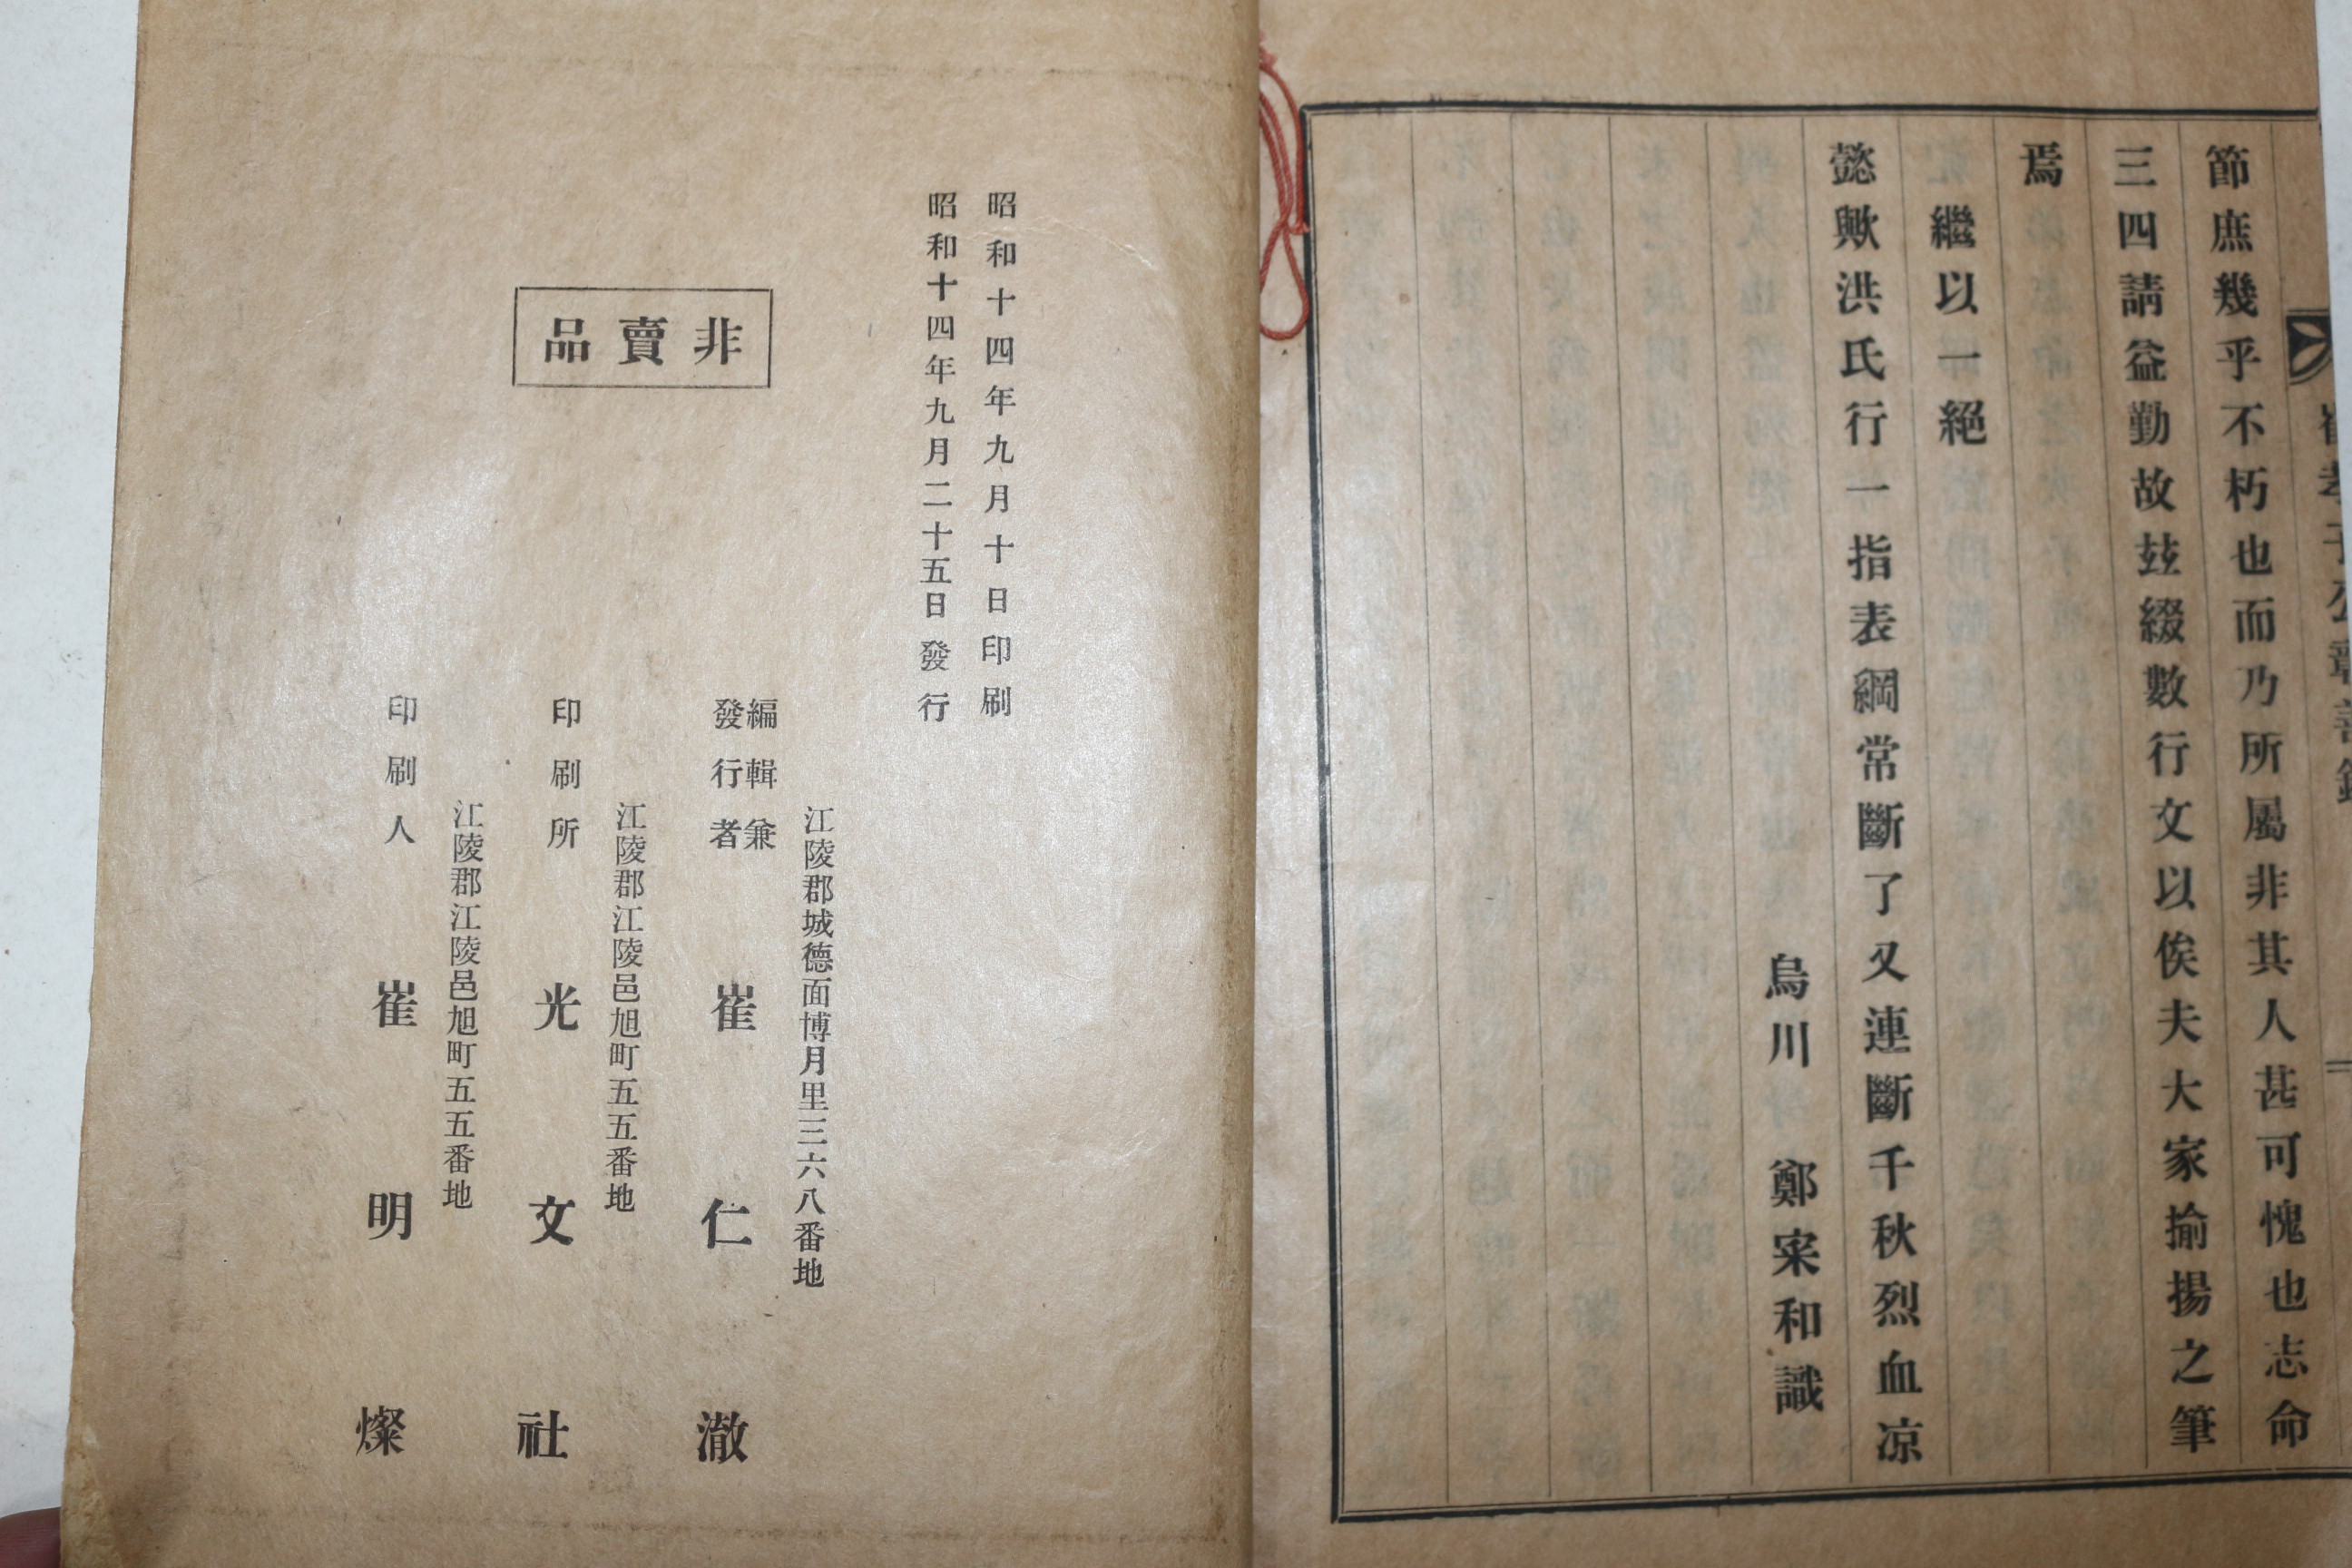 節庶幾乎不朽也而乃所屬非其人甚可愧也志命
三四請益勤故玆綴數行文以俟夫大家揄揚之筆
焉
繼以一絕
懿歟洪氏行一指表綱常斷了又連斷千秋烈血凉
烏川 鄭宷和識
昭和十四年九月十日印刷
昭和十四年九月二十五日發行
非賣品
江陵郡城德面博月里三六八番地
編輯兼
發行者 崔仁澈
江陵郡江陵邑旭町五五番地
印刷所 光文社
江陵郡江陵邑旭町五五番地
印刷人 崔明燦